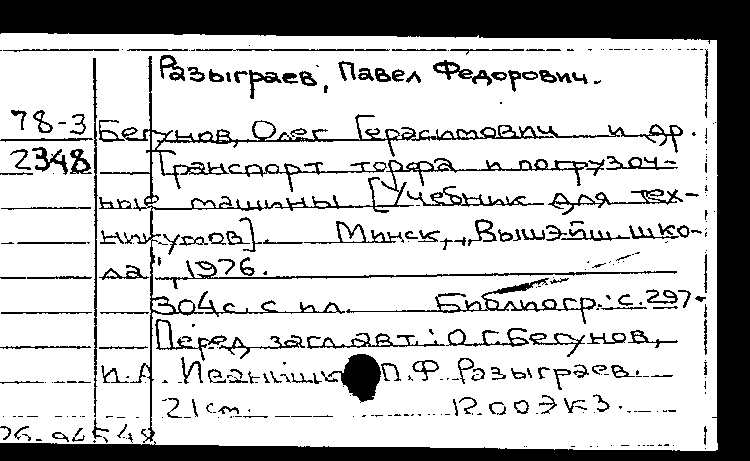 Разыграев, Павел Федорович.
78-3 Бегунов, Олег Герасимович и др.
2348 Транспорт торфа и погрузоч-
ные машины [Учебник для тех-
никумов]. Минск, „Вышэйш. шко-
ла", 1976.
304 с. с ил. Библиогр.: с. 297-
Перед загл. авт.: О.Г. Бегунов,
П.Ф. Разыграев.
21 см. 1200 экз.
76-94548